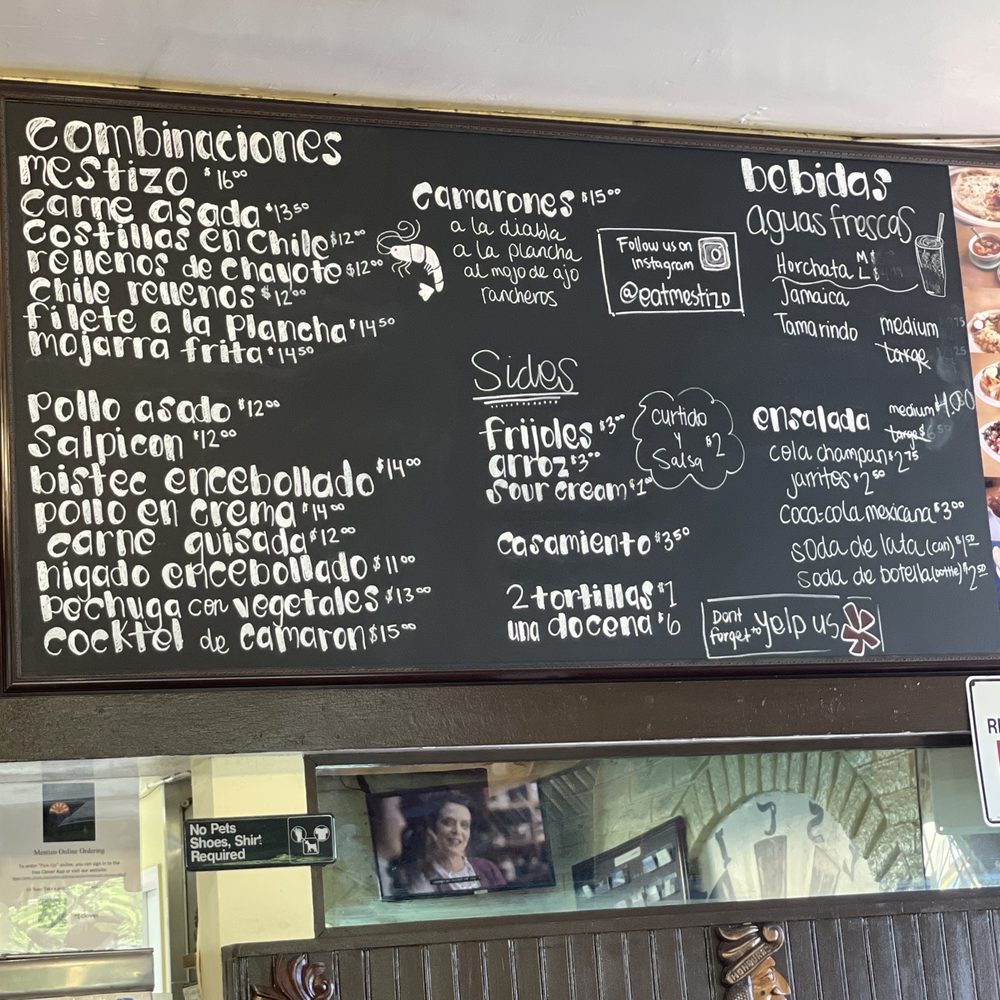 combinaciones
mestizo $16⁰⁰
carne asada $13⁵⁰
costillas en chile $12⁰⁰
rellenos de chayote $12⁰⁰
chile rellenos $12⁰⁰
filete a la plancha $14⁵⁰
mojarra frita $14⁵⁰
pollo asado $12⁰⁰
Salpicon $12⁰⁰
bistec encebollado $14⁰⁰
pollo en crema $14⁰⁰
carne guisada $12⁰⁰
higado encebollado $11⁰⁰
pechuga con vegetales $13⁰⁰
cocktel de camaron $15⁰⁰
camarones $15⁰⁰
a la diabla
a la plancha
al mojo de ajo
rancheros
Follow us on
Instagram
@eatmestizo
Sides
frijoles $3⁰⁰
arroz $3⁰⁰
sour cream $1⁰⁰
curtido
y
Salsa $2
casamiento $3⁵⁰
2 tortillas $1
una docena $6
bebidas
aguas frescas
Horchata M $
L $
Jamaica
Tamarindo medium
large
ensalada medium 4.00
large $
cola champan $2⁷⁵
jarritos $2⁵⁰
coca-cola mexicana $3⁰⁰
soda de lata (can) $1⁵⁰
soda de botella (bottle) $2⁵⁰
Dont
forget to yelp us
No Pets
Shoes, Shirt
Required
Mestizo Online Ordering